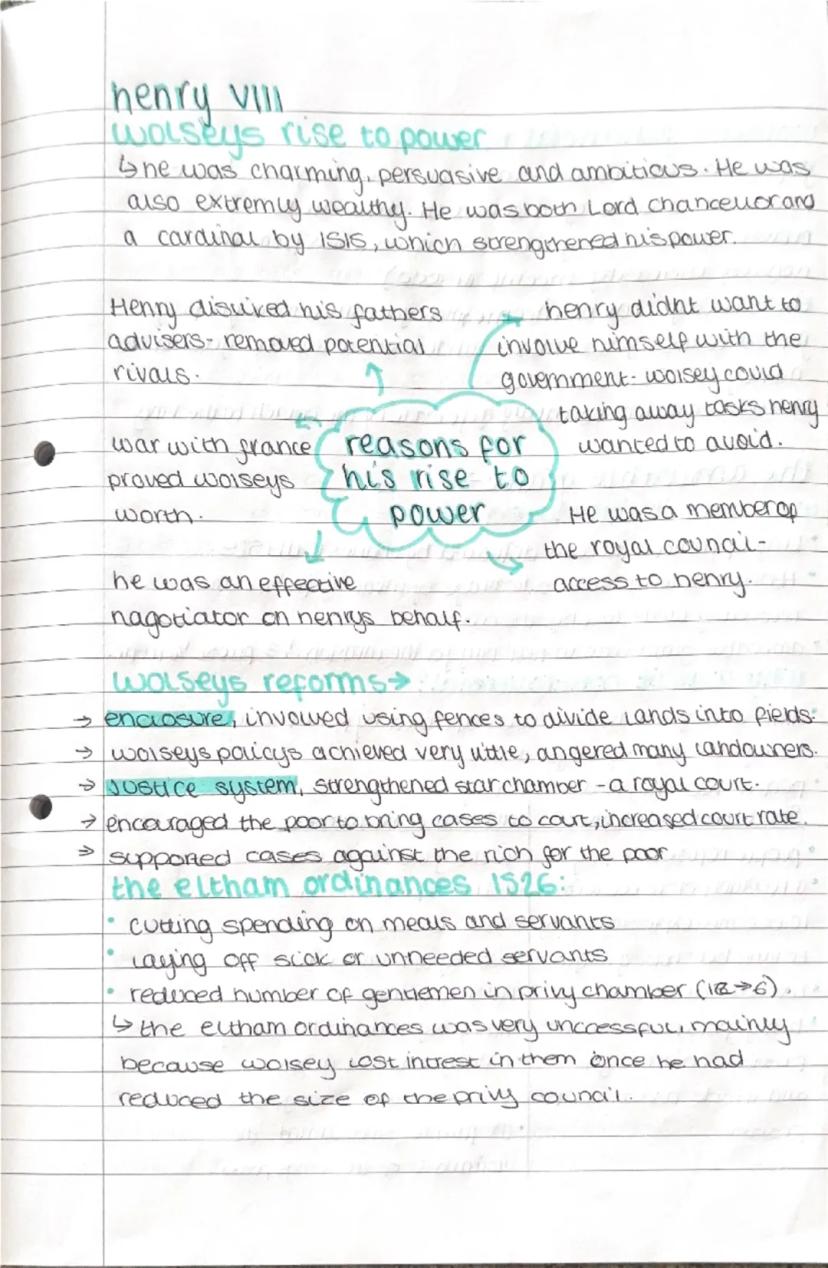 henry VIII
wolseys rise to power
↳ he was charming, persuasive and ambitious. He was
also extremly wealthy. He was both Lord chancellor and
a cardinal by 1515, which strengthened his power.
Henry disliked his fathers
advisers - removed potential
rivals.
henry didnt want to
involve himself with the
government - wolsey could
taking away tasks henry
wanted to avoid.
war with france
proved wolseys
worth.
reasons for
his rise to
power
He was a member of
the royal council -
access to henry.
he was an effective
nagotiator on henrys behalf.
wolseys reforms →
→ enclosure, involved using fences to divide lands into fields.
→ wolseys policys achieved very little, angered many landowners.
→ Justice system, strengthened star chamber - a royal court.
→ encouraged the poor to bring cases to court, increased court rate.
→ supported cases against the rich for the poor
the eltham ordinances 1526:
• cutting spending on meals and servants
• laying off sick or unneeded servants
• reduced number of gentlemen in privy chamber (12→6).
↳ the eltham ordinances was very uncessful, mainly
because wolsey lost intrest in them once he had
reduced the size of the privy council.